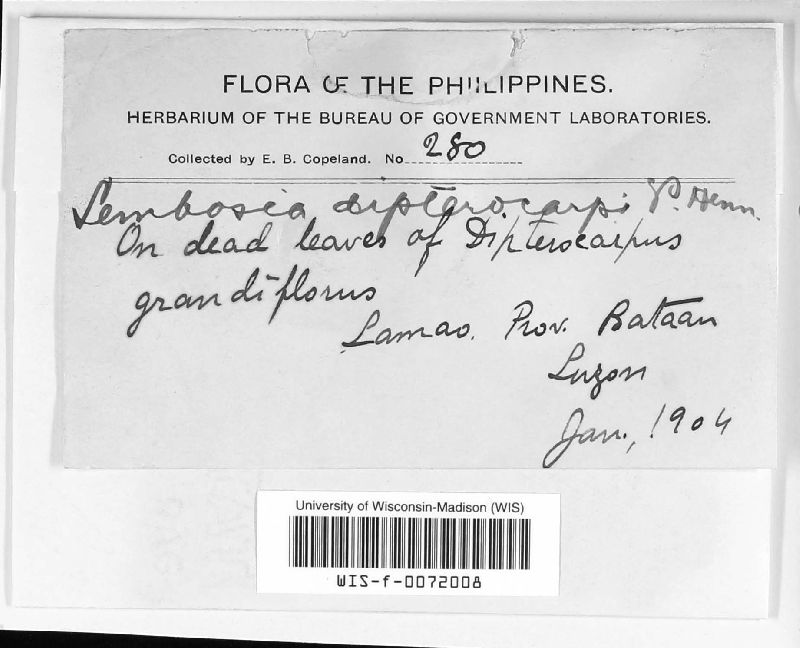 FLORA OF THE PHILIPPINES.
HERBARIUM OF THE BUREAU OF GOVERNMENT LABORATORIES.
Collected by E. B. Copeland. No. 280
Lembosia dipterocarpi P. Henn.
On dead leaves of Dipterocarpus
grandiflorus
Lamao. Prov. Bataan
Luzon
Jan., 1904
University of Wisconsin-Madison (WIS)
WIS-f-0072008